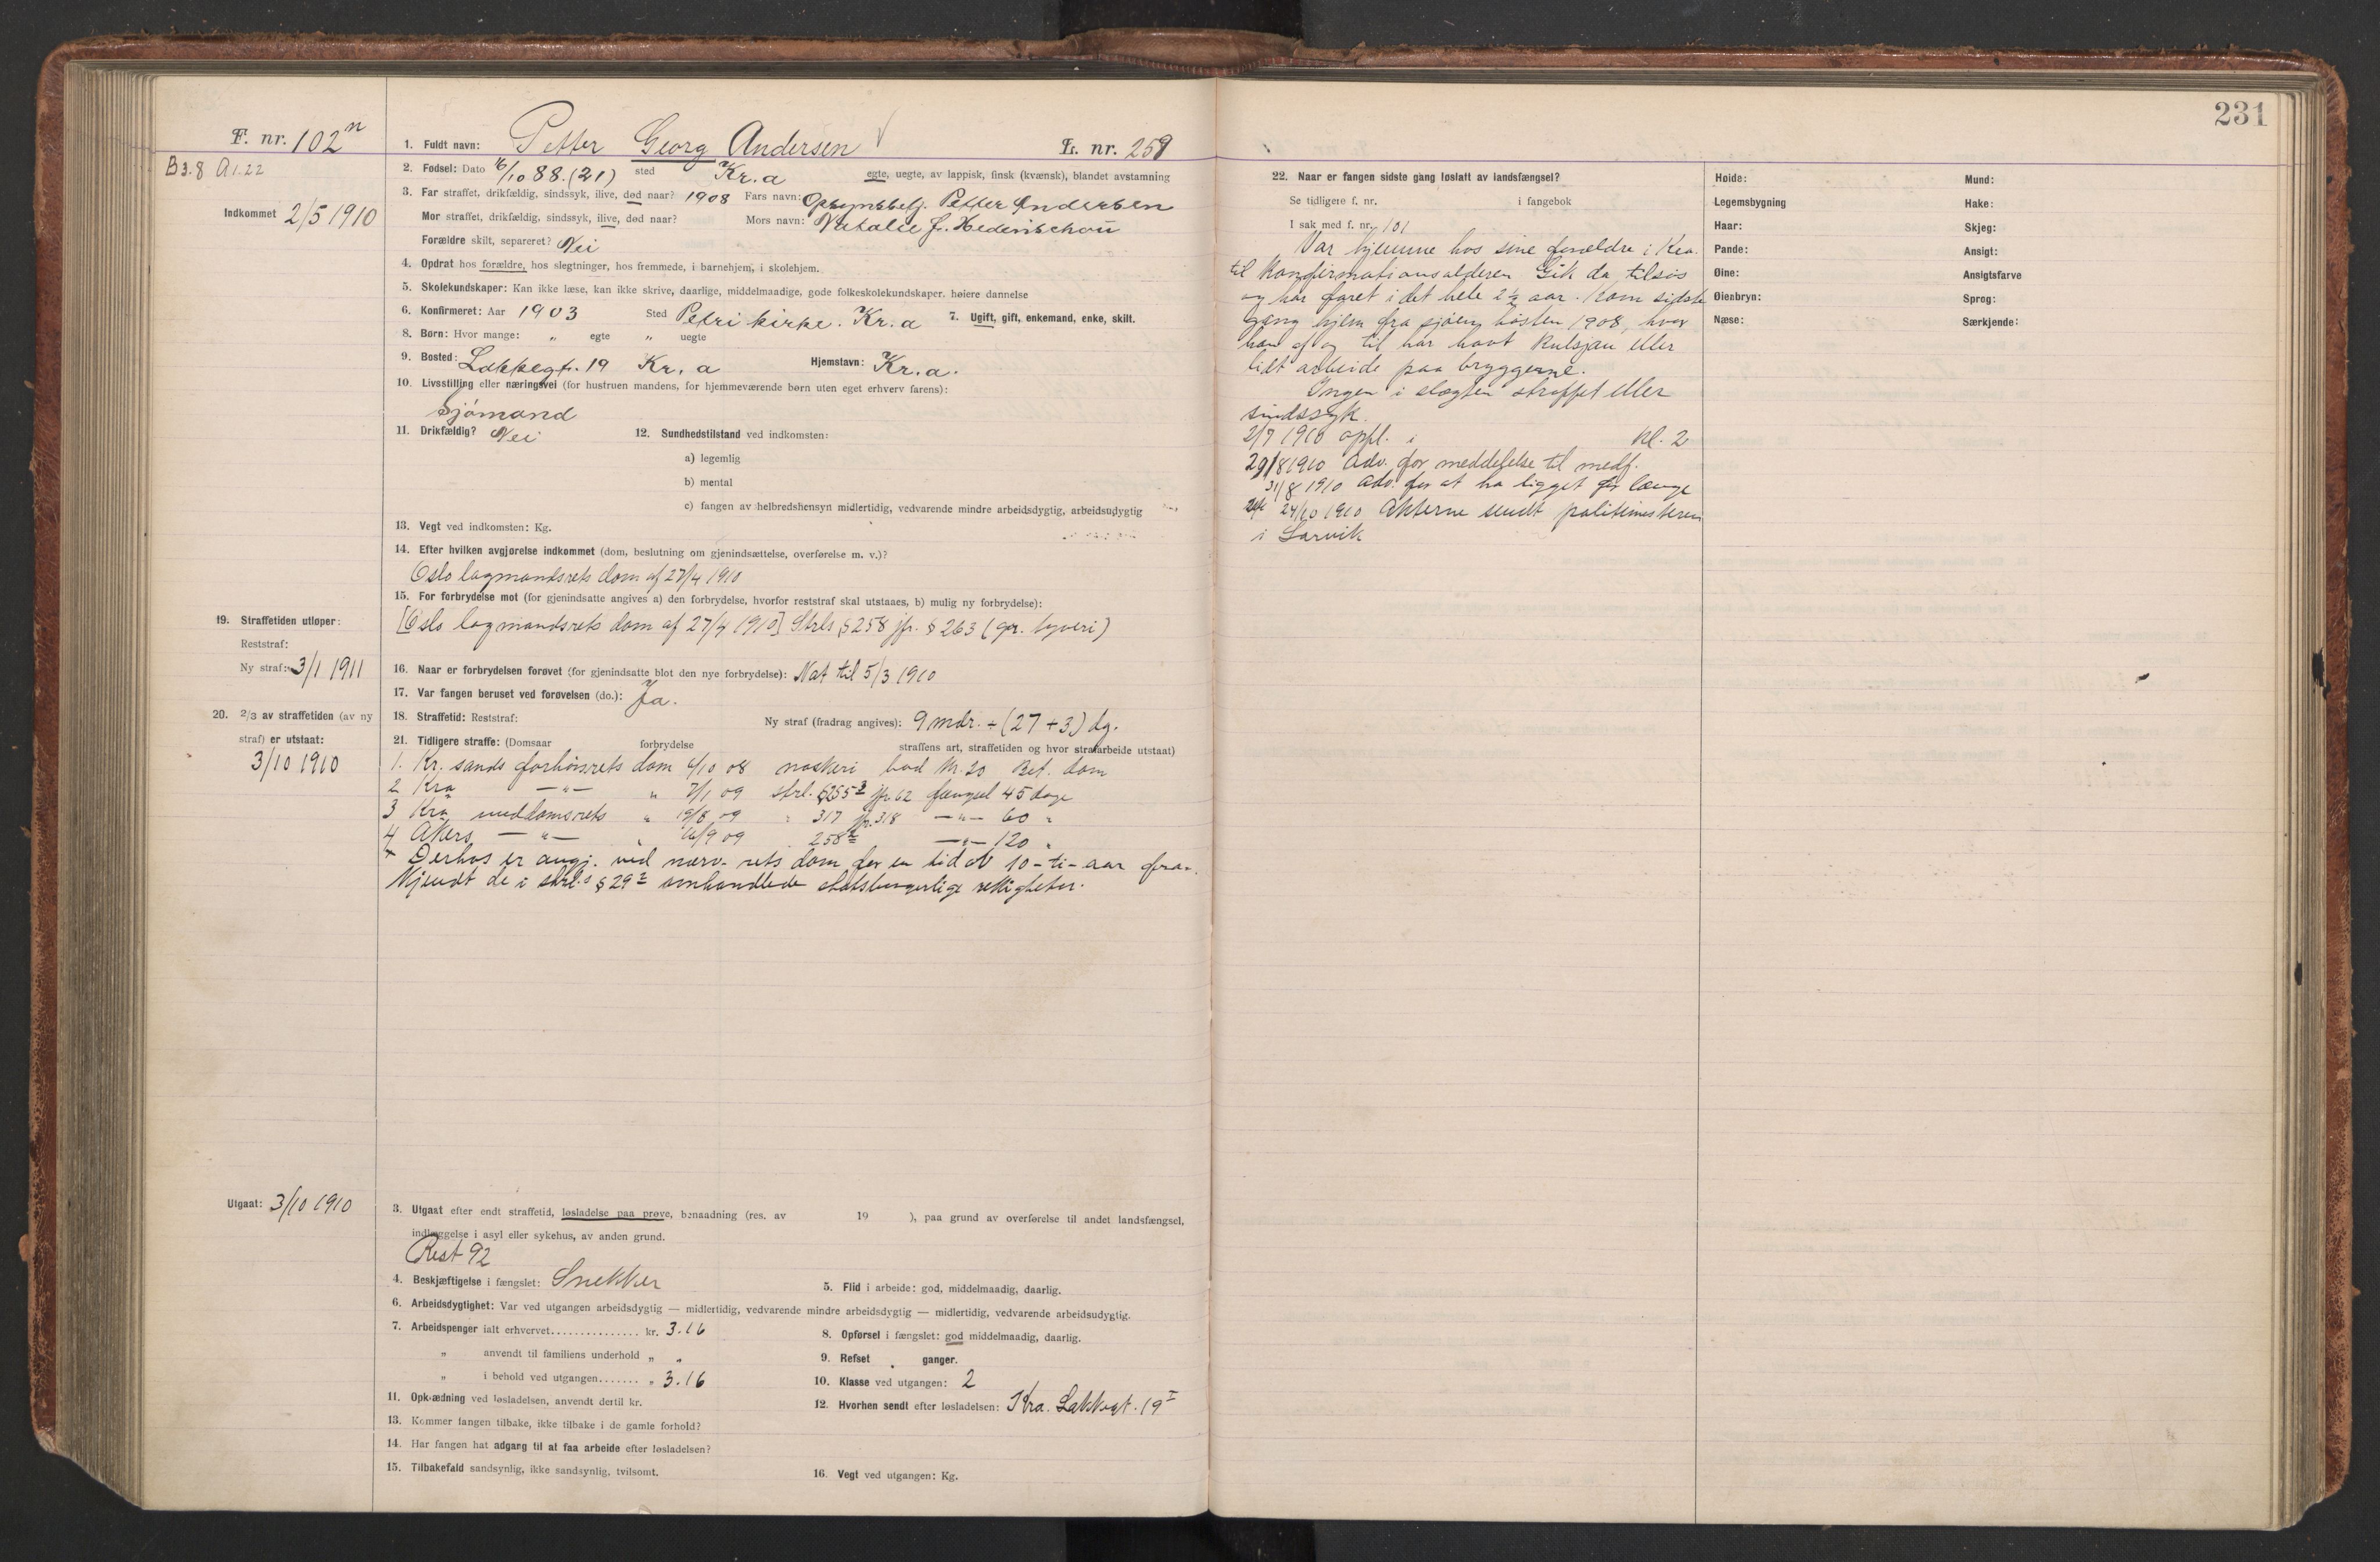 231
F. nr. 102 n
1. Fuldt navn: Petter Georg Andersen
L. nr. 259
B3.8 A1.22
2. Fødsel: Dato 16/10 88. (21) sted Kr.a egte, uegte, av lappisk, finsk (kvænsk), blandet avstamning
Indkommet 2/5 1910
3. Far straffet, drikfældig, sindssyk, ilive, død naar? 1908 Fars navn: Opsynsbetj. Petter Andersen
Mor straffet, drikfældig, sindssyk, ilive, død naar? Mors navn: Natalie J.
Forældre skilt, separeret? Nei
4. Opdrat hos forældre, hos slegtninger, hos fremmede, i barnehjem, i skolehjem.
5. Skolekundskaper: Kan ikke læse, kan ikke skrive, daarlige, middelmaadige, gode folkeskolekundskaper. høiere dannelse
6. Konfirmeret: Aar 1903 Sted Petri kirke. Kr.a 7. Ugift, gift, enkemand, enke, skilt.
8. Børn: Hvor mange: " egte " uegte
9. Bosted: Lakkegt. 19 Kr.a Hjemstavn: Kr.a.
10. Livsstilling eller næringsvei (for hustruen mandens, for hjemmeværende børn uten eget erhverv farens):
Sjömand
11. Drikfældig? Nei 12. Sundhedstilstand ved indkomsten:
a) legemlig
b) mental
c) fangen av helbredshensyn midlertidig, vedvarende mindre arbeidsdygtig, arbeidsudygtig
13. Vegt ved indkomsten: Kg.
14. Efter hvilken avgjørelse indkommet (dom, beslutning om gjenindsættelse, overførelse m. v.)?
Oslo lagmandsrets dom af 27/4 1910
15. For forbrydelse mot (for gjenindsatte angives a) den forbrydelse, hvorfor reststraf skal utstaaes, b) mulig ny forbrydelse):
[Oslo lagmandsrets dom af 27/4 1910] Strls § 258 jfr. § 263 (gr. tyveri)
19. Straffetiden utløper:
Reststraf:
Ny straf: 3/1 1911
16. Naar er forbrydelsen forøvet (for gjenindsatte blot den nye forbrydelse): Nat til 5/3 1910
17. Var fangen beruset ved forøvelsen (do.): Ja.
20. 2/3 av straffetiden (av ny
straf) er utstaat:
3/10 1910
18. Straffetid: Reststraf: Ny straf (fradrag angives): 9 mdr. ÷ (27 + 3) dg.
21. Tidligere straffe: (Domsaar forbrydelse straffens art, straffetiden og hvor strafarbeide utstaat)
1. Kr.sands forhörsrets dom 4/10 08 naskeri bod kr. 20 Bet. dom
2 Kra —"— " 7/1 09 strl. § 255 jfr 62 fængsel 45 dage
3 Kra meddomsrets " 19/5 09 " 317 jfr. 318 —"— 60 "
4 Akers —"— " 16/9 09 258 —"— 120 "
Derhos er angj. ved nærv. rets dom for en tid af 10 - ti - aar fra-
kjendt de i strl.s § 29 omhandlede statsborgerlige rettigheter.
Utgaat: 3/10 1910
3. Utgaat efter endt straffetid, løsladelse paa prøve, benaadning (res. av 19 ), paa grund av overførelse til andet landsfængsel,
indlæggelse i asyl eller sykehus, av anden grund.
Rest 92
4. Beskjæftigelse i fængslet: Snekker 5. Flid i arbeide: god, middelmaadig, daarlig.
6. Arbeidsdygtighet: Var ved utgangen arbeidsdygtig — midlertidig, vedvarende mindre arbeidsdygtig — midlertidig, vedvarende arbeidsudygtig.
7. Arbeidspenger ialt erhvervet............... kr. 3.16 8. Opførsel i fængslet: god middelmaadig, daarlig.
" anvendt til familiens underhold " " 9. Refset ganger.
" i behold ved utgangen....... " 3.16 10. Klasse ved utgangen: 2
11. Opklædning ved løsladelsen, anvendt dertil kr. 12. Hvorhen sendt efter løsladelsen: Kra. Lakkegt. 19 I
13. Kommer fangen tilbake, ikke tilbake i de gamle forhold?
14. Har fangen hat adgang til at faa arbeide efter løsladelsen?
15. Tilbakefald sandsynlig, ikke sandsynlig, tvilsomt. 16. Vegt ved utgangen: Kg.
22. Naar er fangen sidste gang løslatt av landsfængsel?
Se tidligere f. nr. i fangebok
I sak med f. nr. 101
Var hjemme hos sine forældre i Kra.
til Konfirmationsalderen Gik da tilsjös
og har faret i det hele 2 1/2 aar. Kom sidste
gang hjem fra sjöen hösten 1908, hvor
han af og til har havt kulsjau eller
lidt arbeide paa bryggerne.
Ingen i slægten straffet eller
sindssyk.
2/7 1910 opfl. i kl. 2
29/8 1910 Adv. for meddelelse til medf.
31/8 1910 Adv. for at ha ligget for længe
24/10 1910 Akterne sendt politimesteren
i Larvik
Høide: Mund:
Legemsbygning Hake:
Haar: Skjeg:
Pande: Ansigt:
Øine: Ansigtsfarve
Øienbryn: Sprog:
Næse: Særkjende: